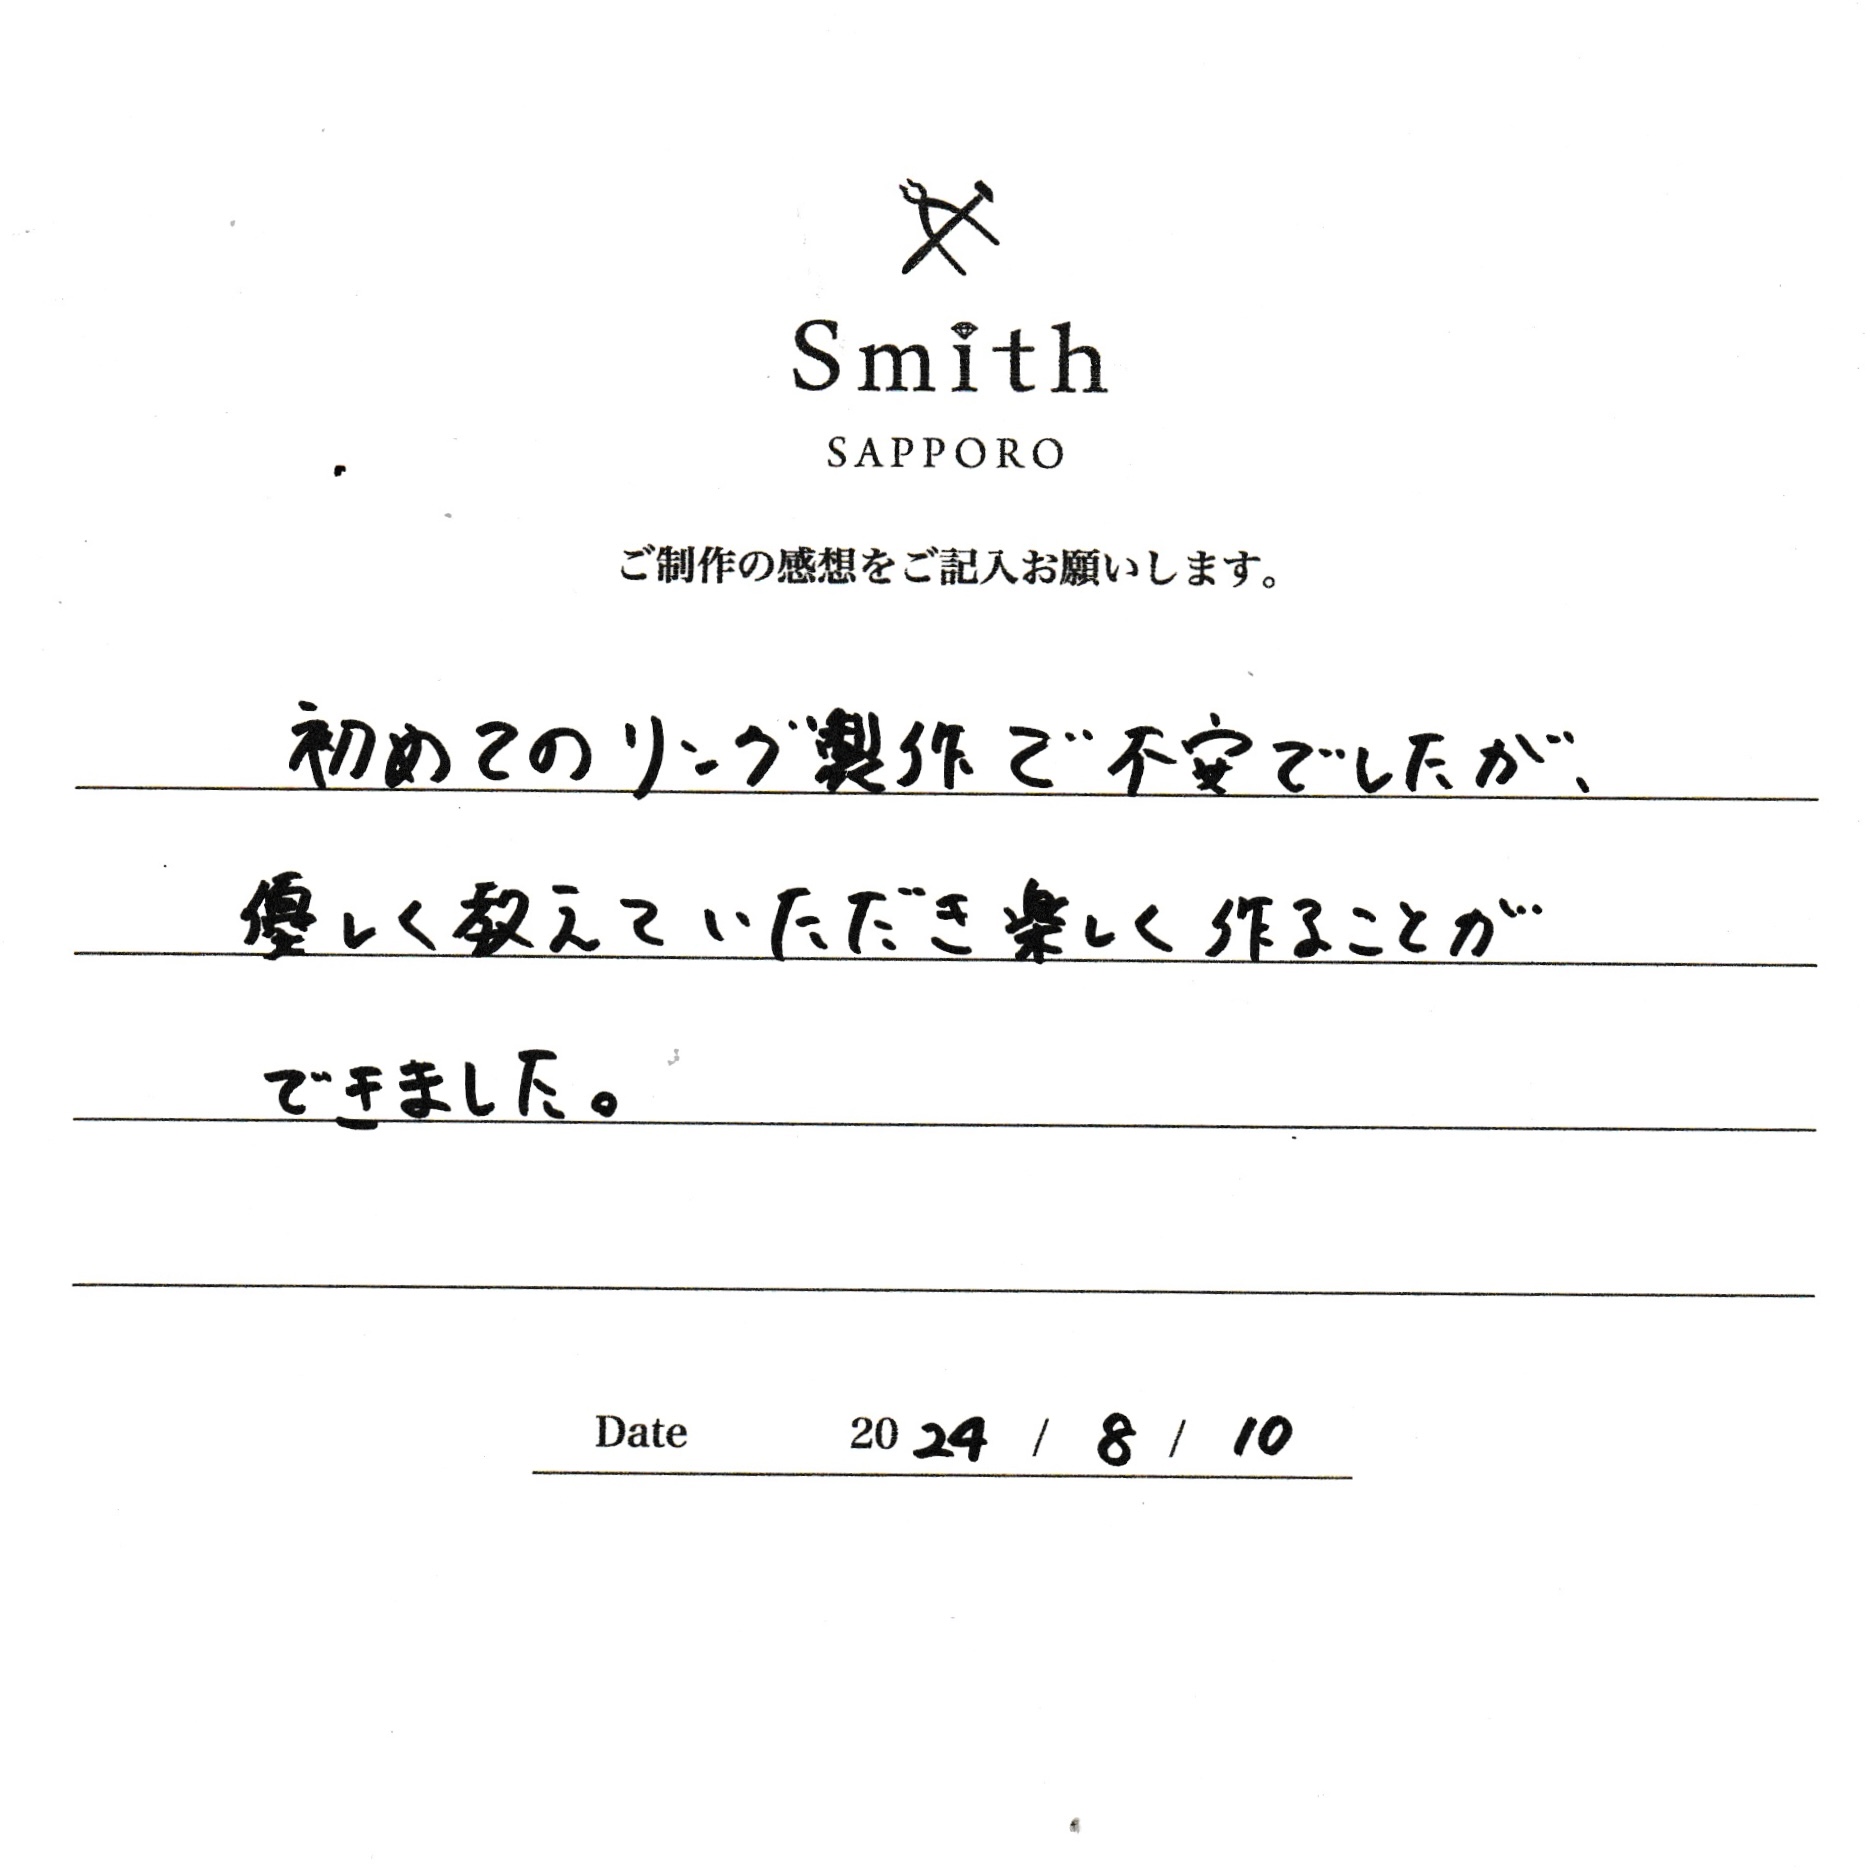 Smith
SAPPORO
ご制作の感想をご記入お願いします。
初めてのリング製作で不安でしたが、
優しく教えていただき楽しく作ることが
できました。
Date 2024 / 8 / 10